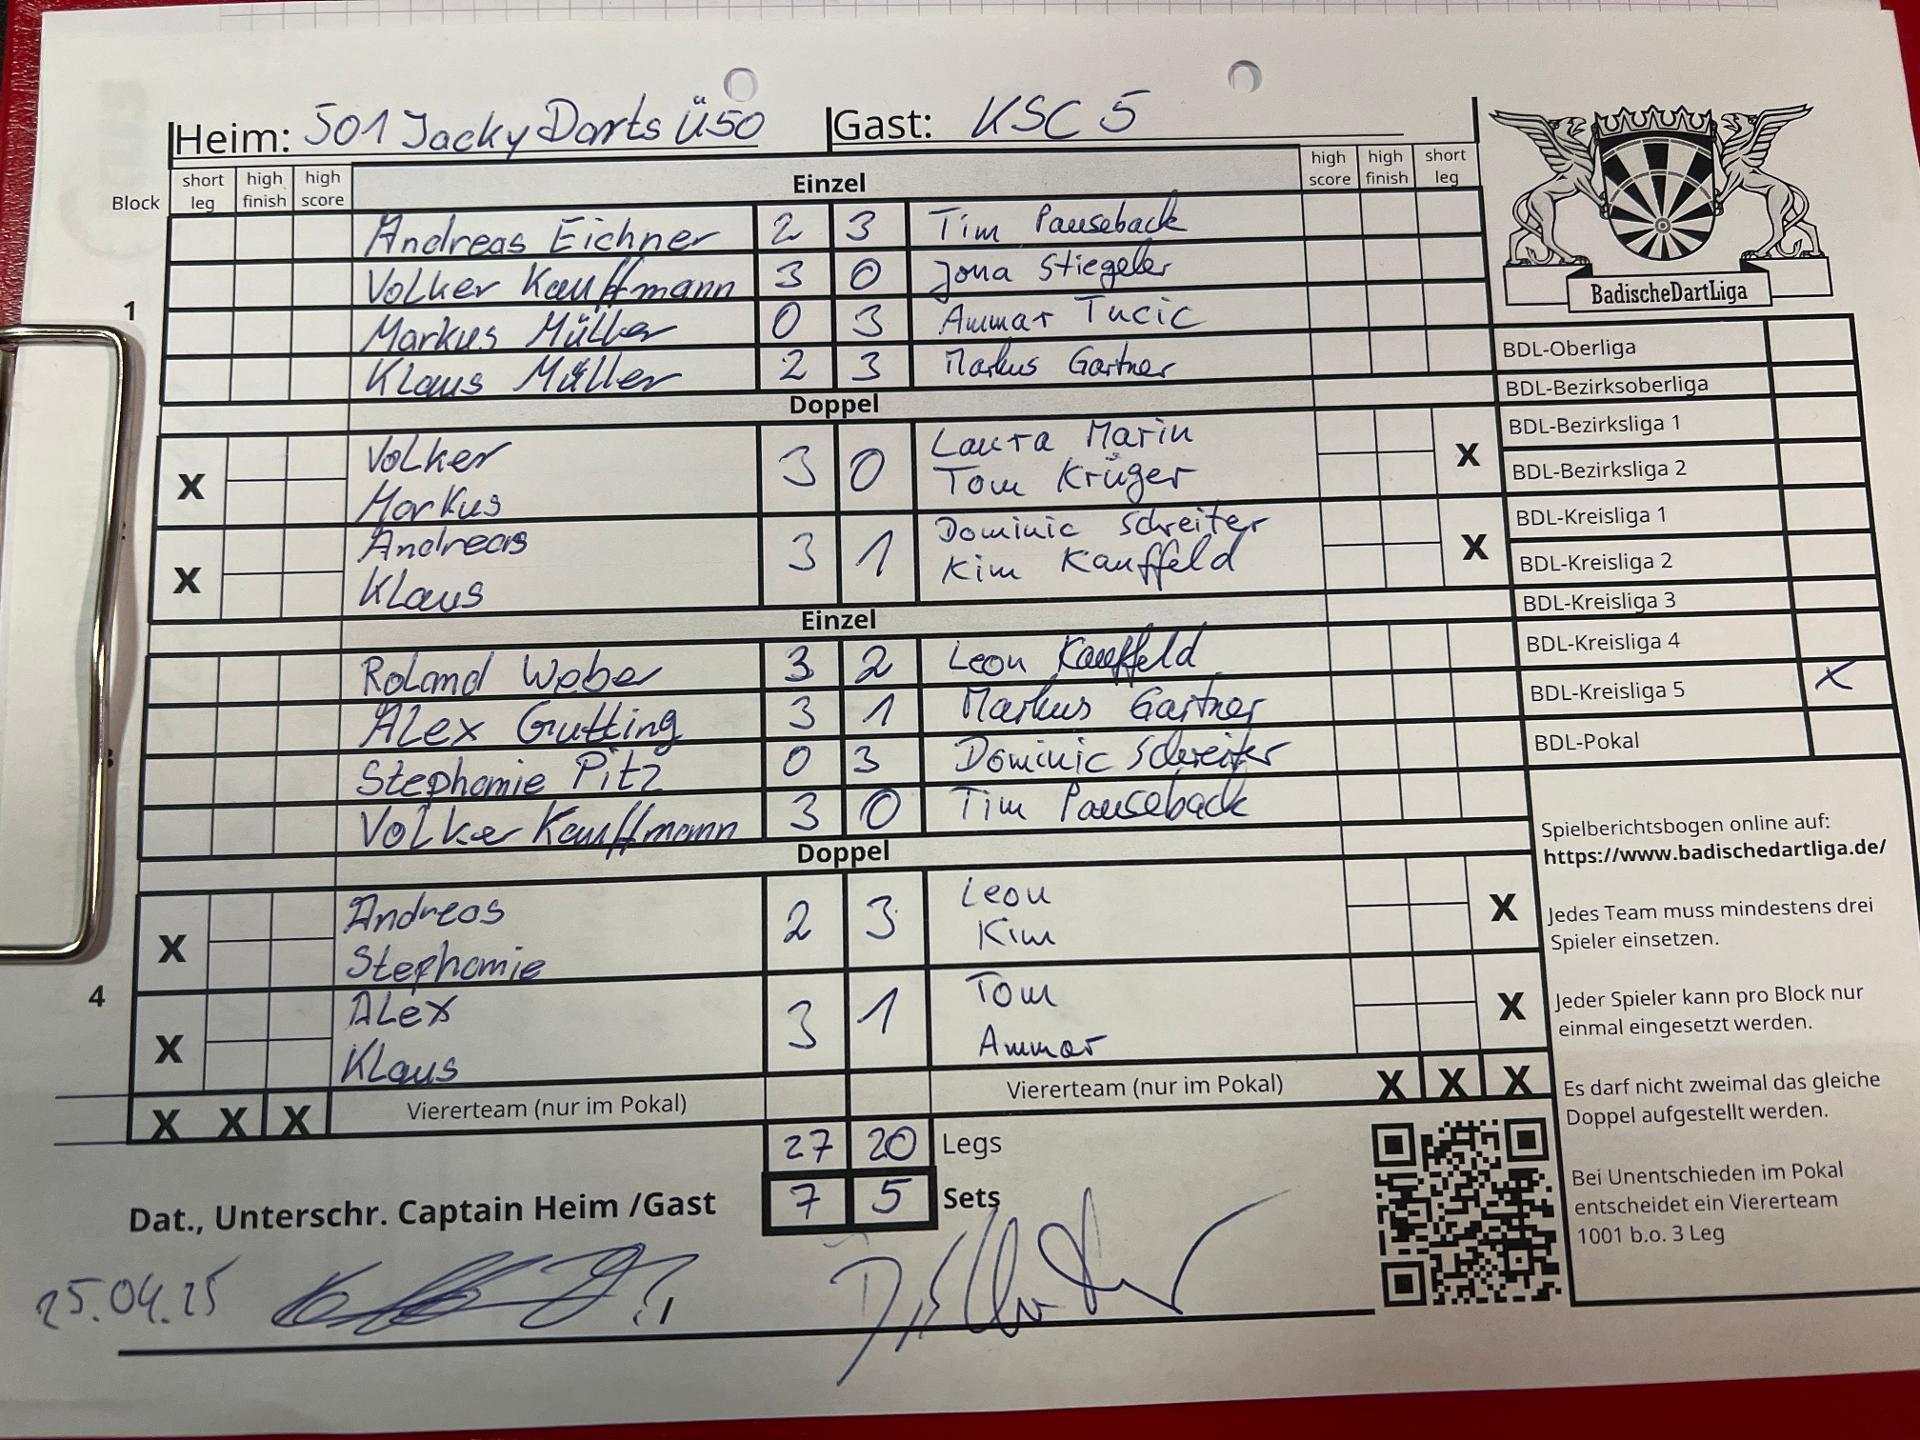 Heim: 501 Jacky Darts Ü50 Gast: KSC 5
Block short leg high finish high score Einzel high score high finish short leg
Andreas Eichner 2 3 Tim Pauseback
Volker Kauffmann 3 0 Jona Stiegeler
1
Markus Müller 0 3 Ammar Tucic
Klaus Müller 2 3 Markus Gartner
Doppel
X Volker 3 0 Laura Marin X
Markus Tom Krüger
X Andreas 3 1 Dominic Schreiter X
Klaus Kim Kauffeld
Einzel
Roland Weber 3 2 Leon Kauffeld
Alex Gutting 3 1 Markus Gartner
Stephanie Pitz 0 3 Dominic Schreiter
Volker Kauffmann 3 0 Tim Pauseback
Doppel
X Andreas 2 3 Leon X
Stephanie Kim
4
X Alex 3 1 Tom X
Klaus Ammar
X X X Viererteam (nur im Pokal) Viererteam (nur im Pokal) X X X
27 20 Legs
Dat., Unterschr. Captain Heim /Gast 7 5 Sets
25.04.25
BadischeDartLiga
BDL-Oberliga
BDL-Bezirksoberliga
BDL-Bezirksliga 1
BDL-Bezirksliga 2
BDL-Kreisliga 1
BDL-Kreisliga 2
BDL-Kreisliga 3
BDL-Kreisliga 4
BDL-Kreisliga 5 X
BDL-Pokal
Spielberichtsbogen online auf:
https://www.badischedartliga.de/
Jedes Team muss mindestens drei
Spieler einsetzen.
Jeder Spieler kann pro Block nur
einmal eingesetzt werden.
Es darf nicht zweimal das gleiche
Doppel aufgestellt werden.
Bei Unentschieden im Pokal
entscheidet ein Viererteam
1001 b.o. 3 Leg